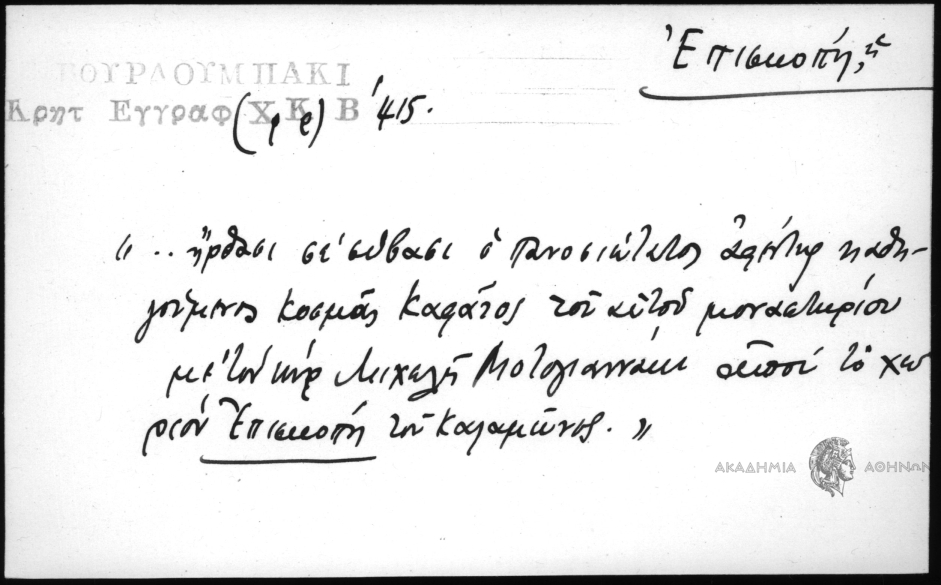 Ἐπισκοπή, ἡ
ΒΟΥΡΔΟΥΜΠΑΚΙ
Κρητ Εγγραφ Χ Κ Β 415.
"... ἤρθασι σέ σύβασι ὁ πανοσιώτατος ἀφέντης καθη-
γούμενος Κοσμᾶς Καφάτος τοῦ αὐτοῦ μοναστηρίου
μέ τόν κύρ Μιχελῆ Μοτογιαννάκι ἀπό τό χω
ριόν Ἐπισκοπή τοῦ Καλαμῶνος."
ΑΚΑΔΗΜΙΑ ΑΘΗΝΩΝ